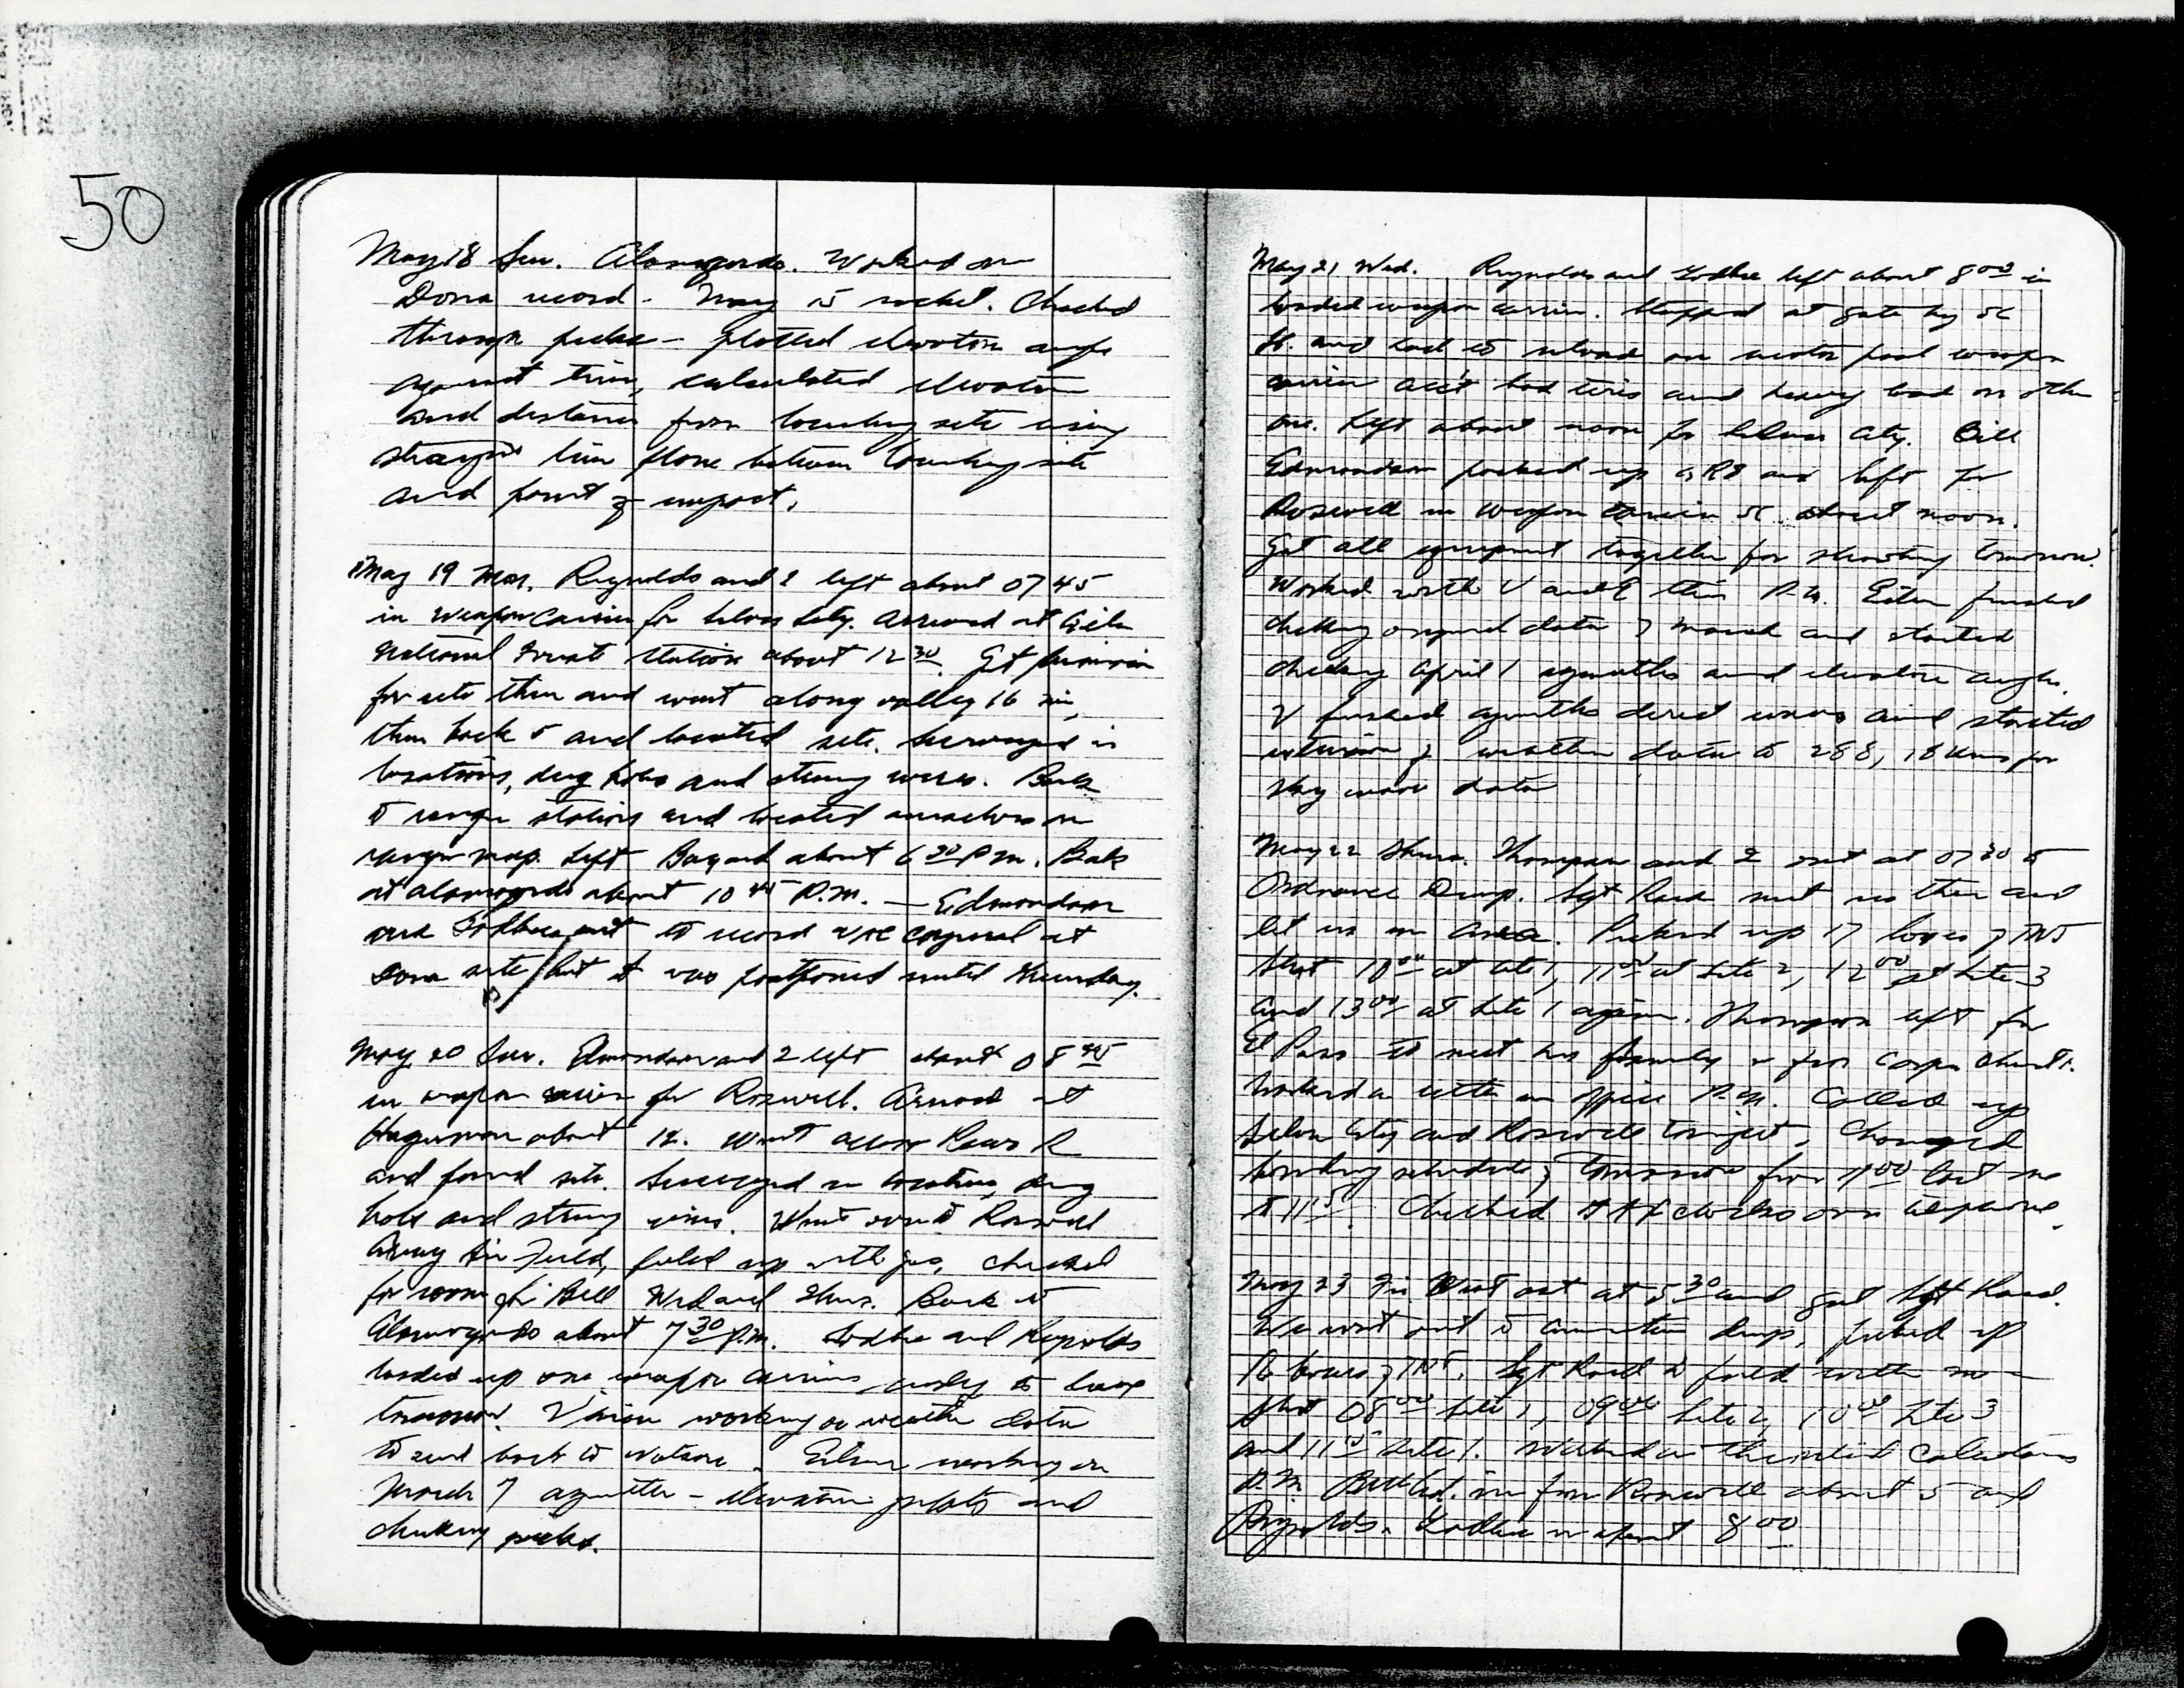 50
May 18 Sun. Alamogordo. Worked on
Dona record - May 15 rocket. Checked
through picks - plotted elevation angle
against time, calculated elevation
and distance from launching site using
straight line plane between launching site
and point of impact.
May 19 Mon. Reynolds and I left about 0745
in Weapon Carrier for Silver City. Arrived at Gila
National Forest Station about 12 30. Got permission
for site then and went along valley 16 mi,
then back 5 and located site. Surveyed in
locations, dug holes and strung wires. Back
to ranger station and located ourselves on
ranger map. Left Bayard about 6 30 P.M. Back
at Alamogordo about 10 45 P.M. — Edmondson
and Godbee out to record WAC corporal at
Dona site, but it was postponed until Thursday.
May 20 Tue. Edmondson and I left about 08 45
in weapon carrier for Roswell. Arrived at
Hagerman about 12. Went across Pecos R
and found site. Surveyed in location, dug
holes and strung wires. Went over to Roswell
Army Air Field, filled up with gas, checked
for room for Bill Wed and Thurs. Back to
Alamogordo about 7 30 P.M. Godbee and Reynolds
loaded up one weapon carrier ready to leave
tomorrow. Vivian working on weather data
to send back to Watson. Eileen working on
March 7 azimuth - elevation plots and
checking picks.
May 21 Wed. Reynolds and Godbee left about 8 00 in
loaded weapon carrier. Stopped at gate by
Lt. and had to reload on motor pool weapon
carrier acc't bad tires and heavy load on other
one. Left about noon for Silver City. Bill
Edmondson packed up and left for
Roswell in weapon carrier about noon.
Got all equipment together for shooting tomorrow.
Worked with V and E this P.M. Eileen finished
checking original data of March and started
checking April 1 azimuths and elevation angles.
V finished azimuths direct waves and started
extension of weather data to 288, 18 kms for
sky wave data
May 22 Thurs. Thompson and I out at 07 30 to
Ordnance Dump. Sgt Reed met us there and
let us in area. Picked up 17 boxes of TNT
Shot 10 00 at site 1, 11 00 at Site 2, 12 00 at Site 3
and 13 00 at Site 1 again. Thompson left for
El Paso to meet his family
Worked on letter in office P.M. Called up
Silver City and Roswell tonight. Changed
bombing schedule of tomorrow from 11 00 last one
to 11 15. Checked clocks over telephone.
May 23 Fri Went out at 5 30 and got Sgt Reed.
We went out to ammunition dump, picked up
16 boxes of TNT. Sgt Reed to field with me -
Shot 08 00 Site 1, 09 00 Site 2, 10 00 Site 3
and 11 15 Site 1. Worked on theoretical Calculations
P.M. Bill Ed. in from Roswell about 5 and
Reynolds - Godbee in about 8 00